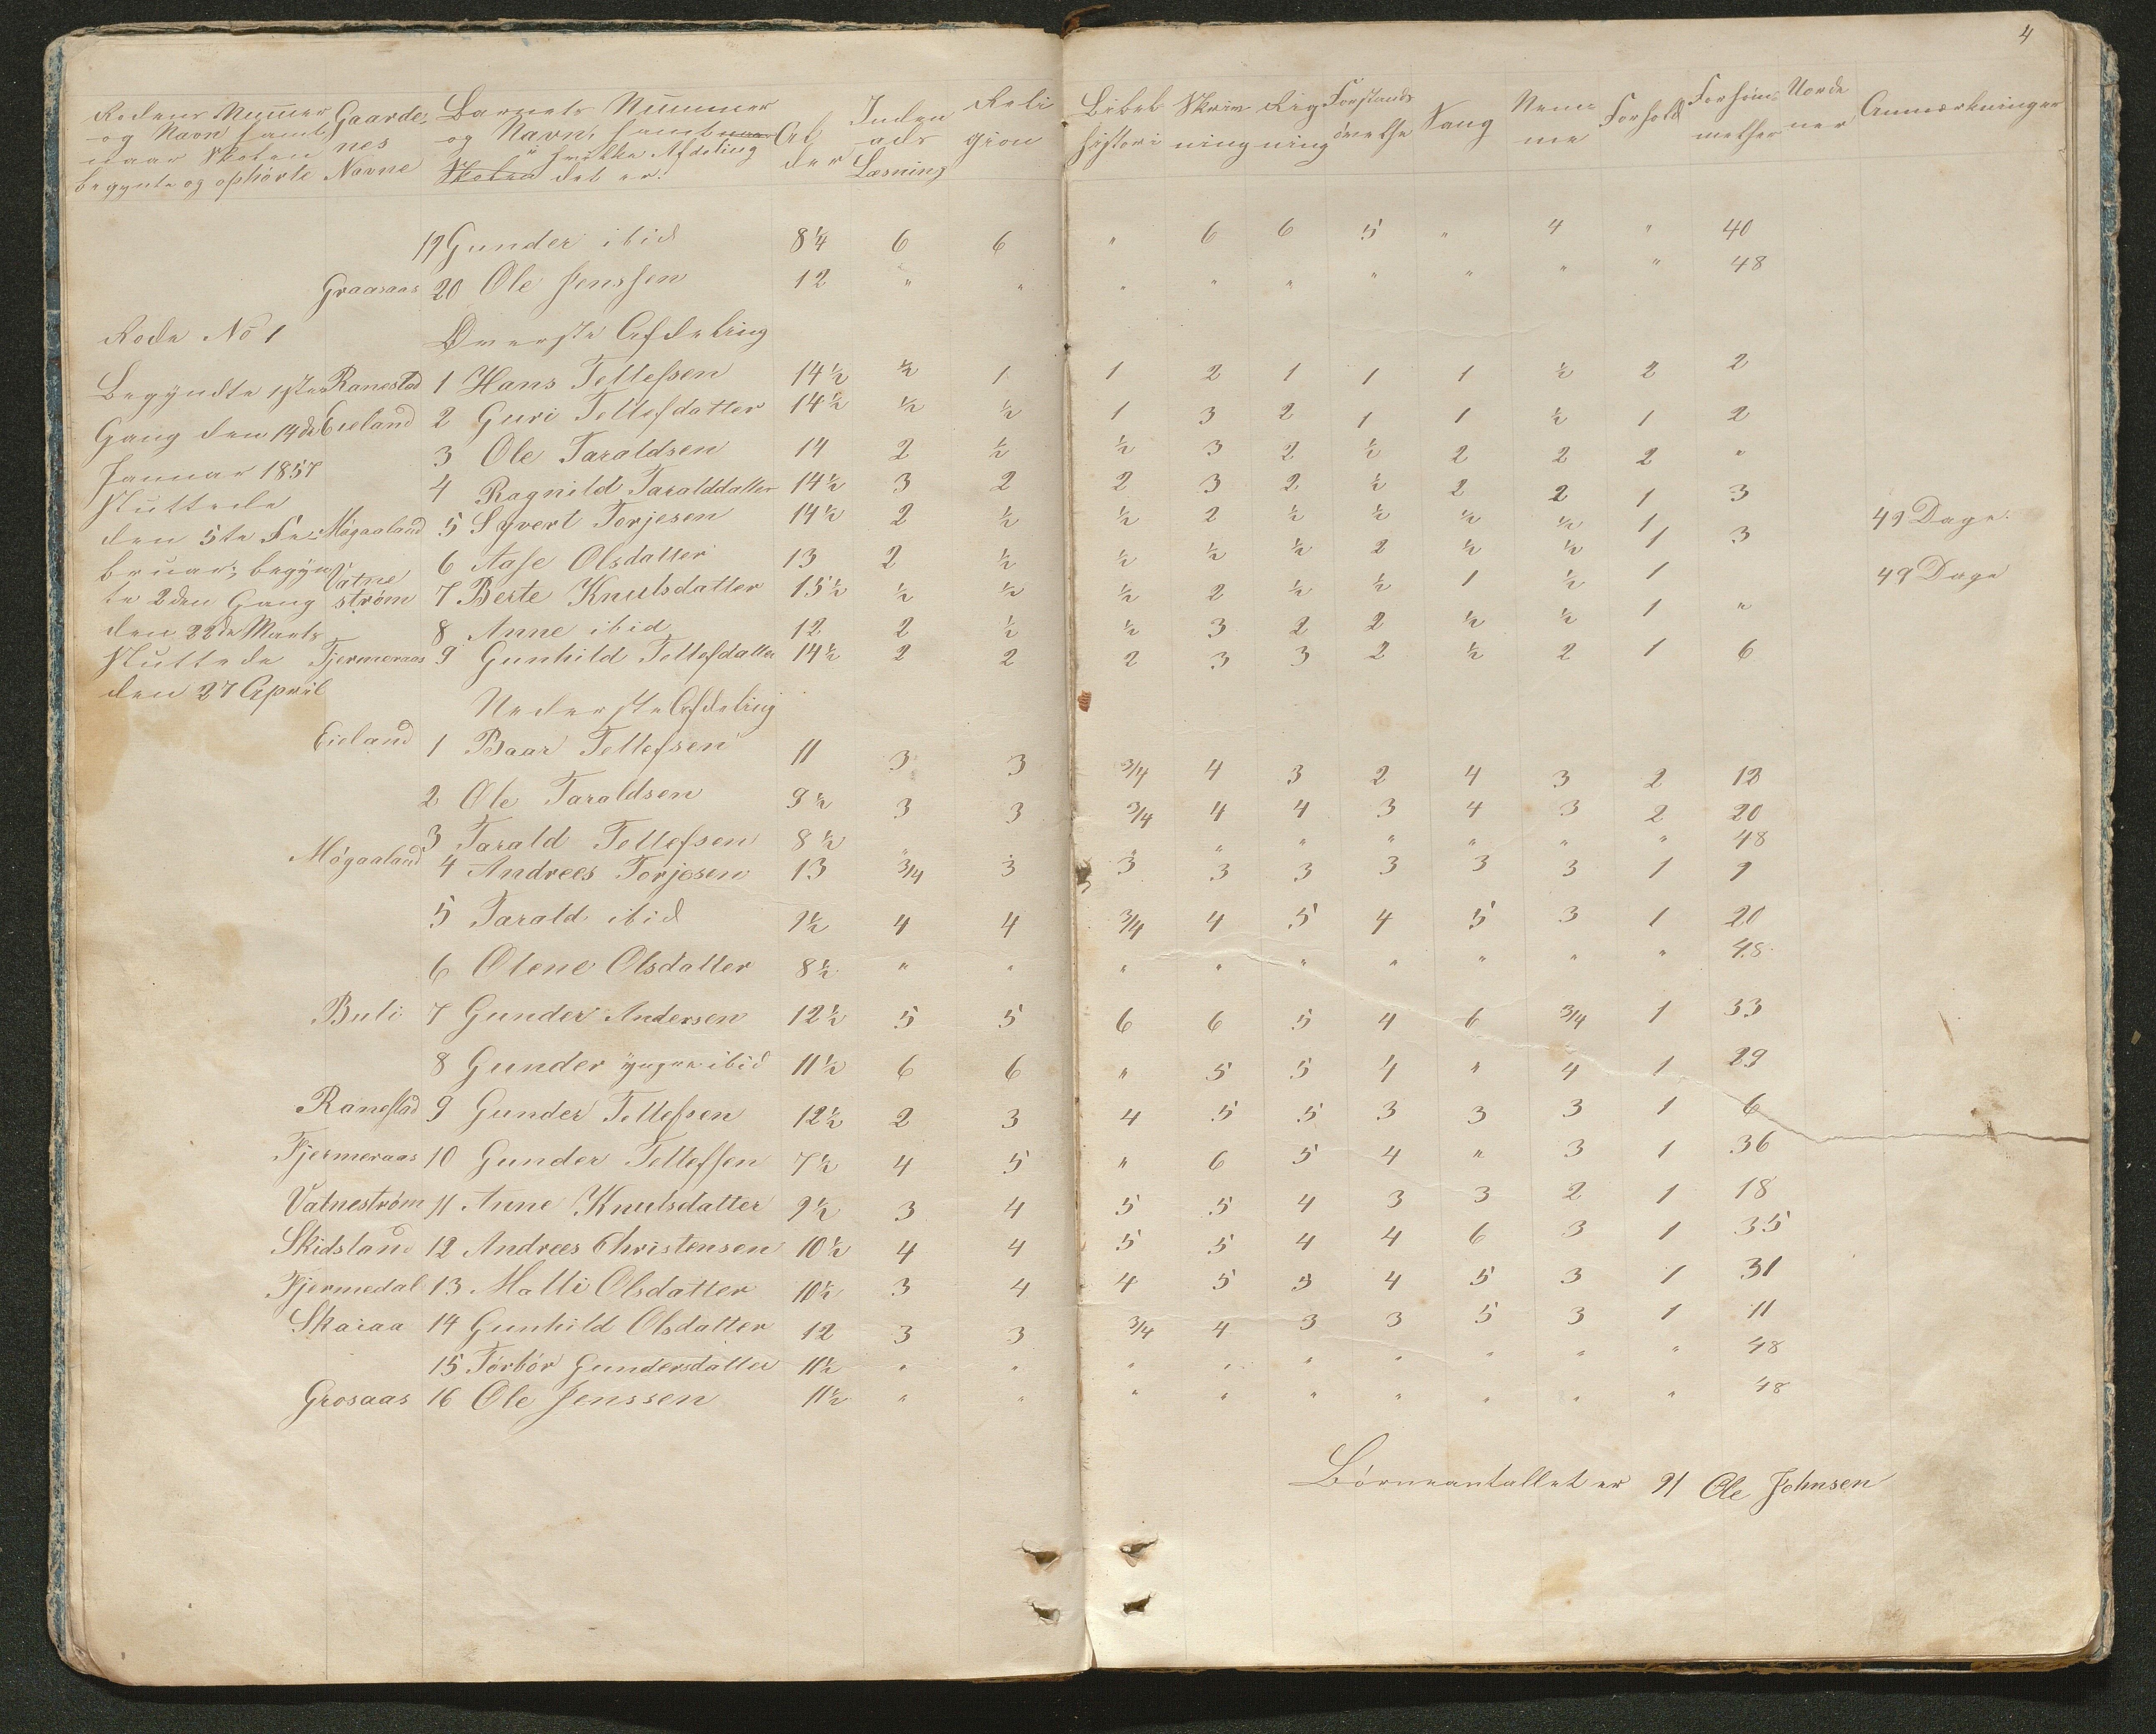 4
Rodens Nummer og Navn samt naar Skolen begynte og ophörte Gaarde-nes Navne Barnets Nummer og Navn, samt i hvilke Afdeling det er. Alder Inden ads Læsning Religion Bibel histori Skrivning Regning Forstandsövelse Sang Nemme Forhold Forsömmelser Anmærkninger
19 Gunder ibid 8¼ 6 6 " 6 6 5 " 4 " 40
Graasaas 20 Ole Jenssen 12 " " " " " " " " " 48
Rode No 1 Överste Afdeling
Begyndte 1ste Ranestad 1 Hans Tellefsen 14½ ½ 1 1 2 1 1 1 ½ 2 2
Gang den 14de Eieland 2 Guri Tellefsdatter 14½ ½ ½ 1 3 2 1 1 ½ 1 2
3 Ole Taraldsen 14 2 ½ ½ 3 2 ½ 2 2 2 "
Januar 1857 4 Ragnild Taralddatter 14½ 3 2 2 3 2 ½ 2 2 1 3
Sluttede
den 5te Fe- Mögaaland 5 Syvert Torjesen 14½ 2 ½ ½ 2 ½ ½ ½ ½ 1 49 Dage.
bruar; begyn 6 Aase Olsdatter 13 2 ½ ½ ½ ½ 2 ½ ½ 1 3
te 2den Gang Vatneström 7 Berte Knutsdatter 15½ ½ ½ ½ 2 ½ ½ 1 ½ 1 49 Dage
den 22de Marts 8 Anne ibid 12 2 ½ ½ 3 2 2 ½ ½ 1 "
Sluttede Tjermeraas 9 Gunhild Tellefdatter 14½ 2 2 2 3 3 2 ½ 2 1 6
den 27 April
Nederste Afdeling
Eieland 1 Baar Tellefsen 11 3 3 3/4 4 3 2 4 3 2 12
2 Ole Taraldsen 9½ 3 3 3/4 4 4 3 4 3 2 20
3 Tarald Tellefsen 8½ " " " " " " " " 48
Mögaaland 4 Andrees Torjesen 13 3/4 3 3 3 3 3 3 3 1 9
5 Tarald ibid 9½ 4 4 3/4 4 5 4 5 3 1 20
6 Olene Olsdatter 8½ " " " " " " " " " 48
Buli 7 Gunder Andersen 12½ 5 5 6 6 5 4 6 3/4 1 33
8 Gunder yngre ibid 11½ 6 6 " 5 5 4 " 4 1 29
Ranestad 9 Gunder Tellefsen 12½ 2 3 4 5 5 3 3 3 1 6
Tjermeraas 10 Gunder Tellefsen 7½ 4 5 " 6 5 4 " 3 1 36
Vatneström 11 Anne Knutsdatter 9½ 3 4 5 5 4 3 3 2 1 18
Skidsland 12 Andrees Christensen 10½ 4 4 5 5 4 4 6 3 1 35
Tjermedal 13 Malli Olsdatter 10½ 3 4 4 5 5 4 5 3 1 31
Skaiaa 14 Gunhild Olsdatter 12 3 3 3/4 4 3 3 5 3 1 11
15 Torbör Gundersdatter 11½ " " " " " " " " " 48
Grosaas 16 Ole Jenssen 11½ " " " " " " " " " 48
Börneantallet er 21 Ole Johnsen